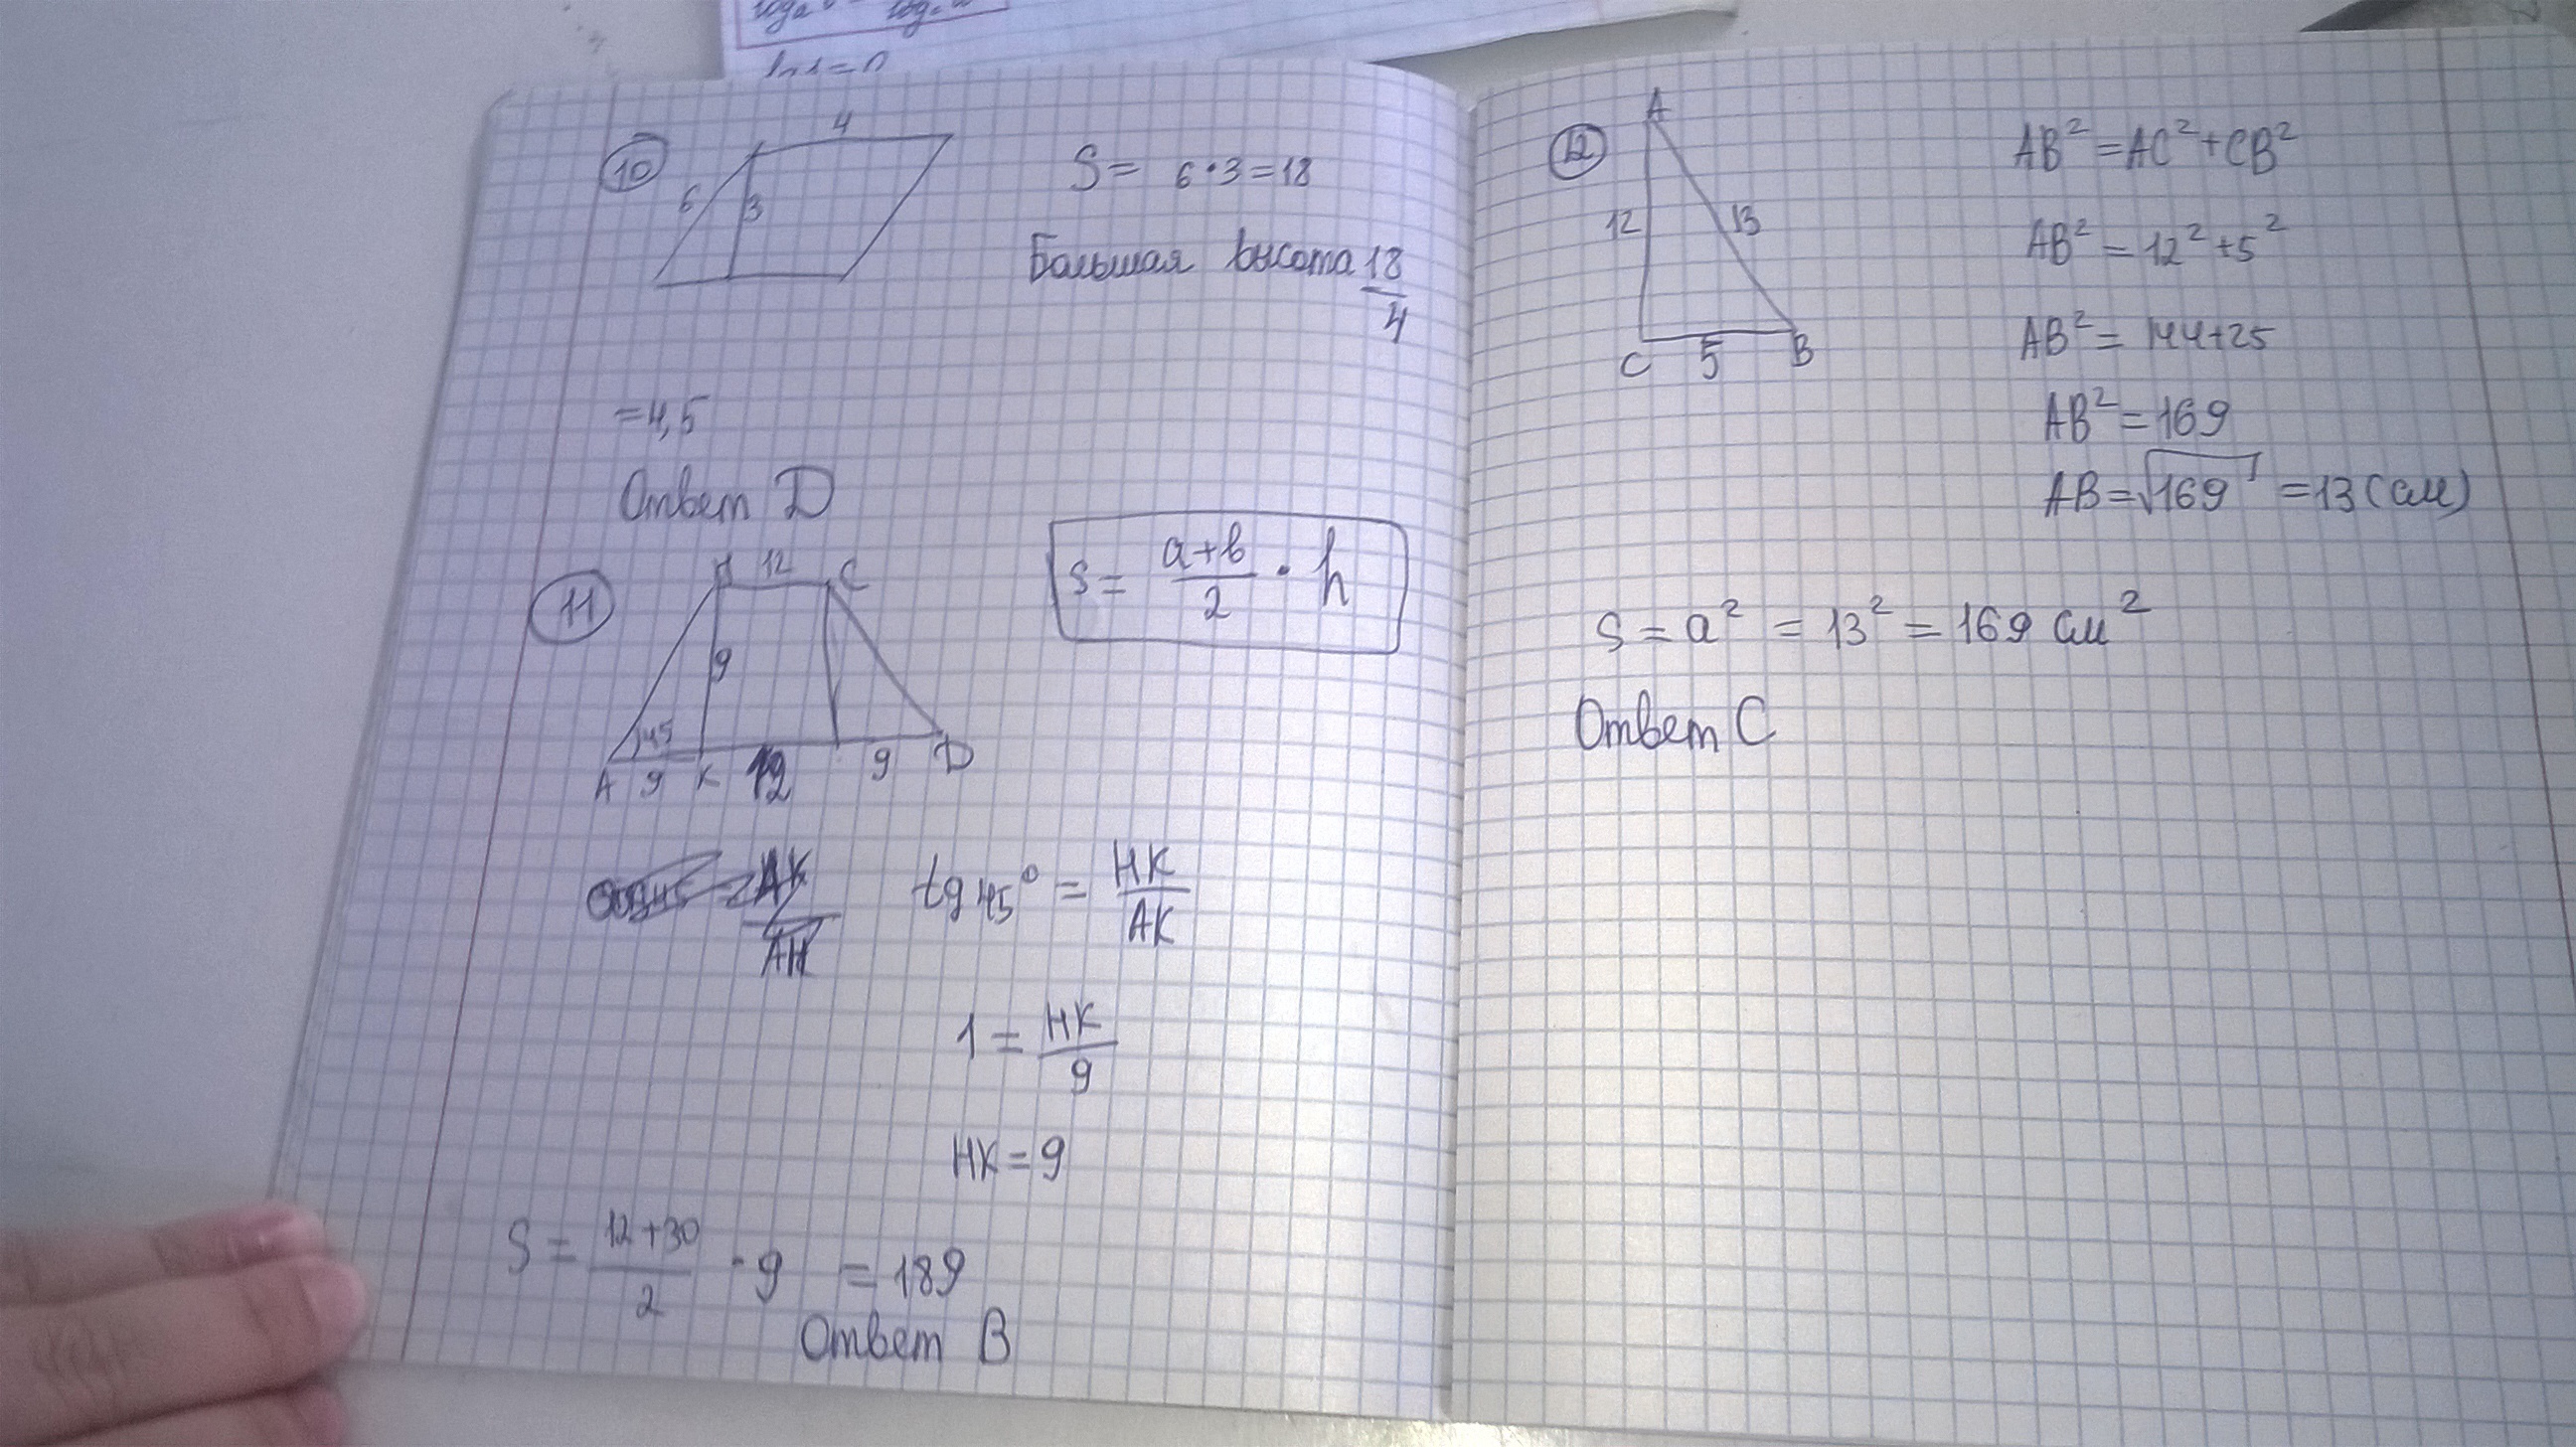 ln1=0
10
4
6
3
S= 6·3=18
Большая высота 18/4
=4,5
Ответ D
11
H 12 C
9
45
A 9 K 12 9 D
S= (a+b)/2 · h
tg45° = HK/AK
1 = HK/9
HK=9
S = (12+30)/2 ·9 =189
Ответ B
12
A
12
13
C 5 B
AB²=AC²+CB²
AB²=12²+5²
AB²= 144+25
AB²=169
AB=√169 =13(см)
S=a²=13²=169 см²
Ответ C